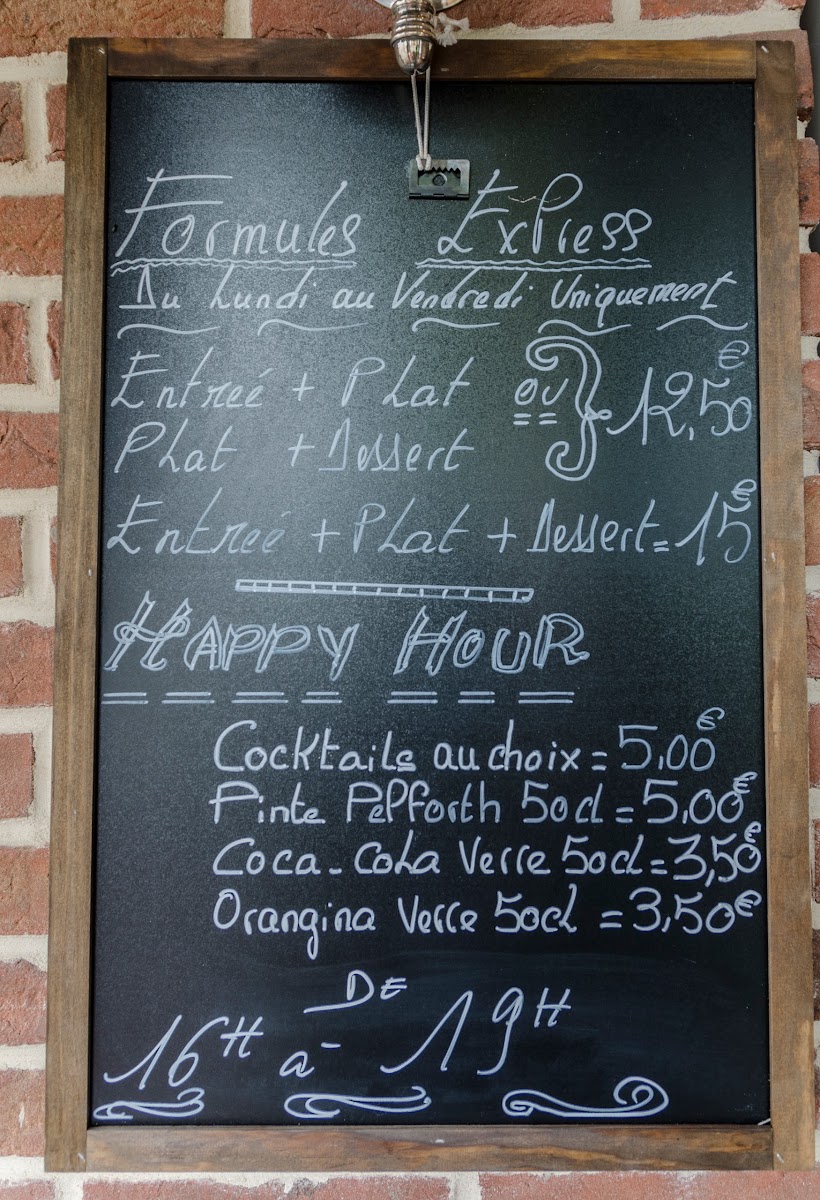 Formules Express
Du Lundi au Vendredi Uniquement
Entreé + Plat ou } 12,50€
Plat + Dessert
Entreé + Plat + Dessert = 15€
HAPPY HOUR
Cocktails au choix = 5,00€
Pinte Pelforth 50cl = 5,00€
Coca-Cola Verre 50cl = 3,50€
Orangina Verre 50cl = 3,50€
DE
16H à 19H